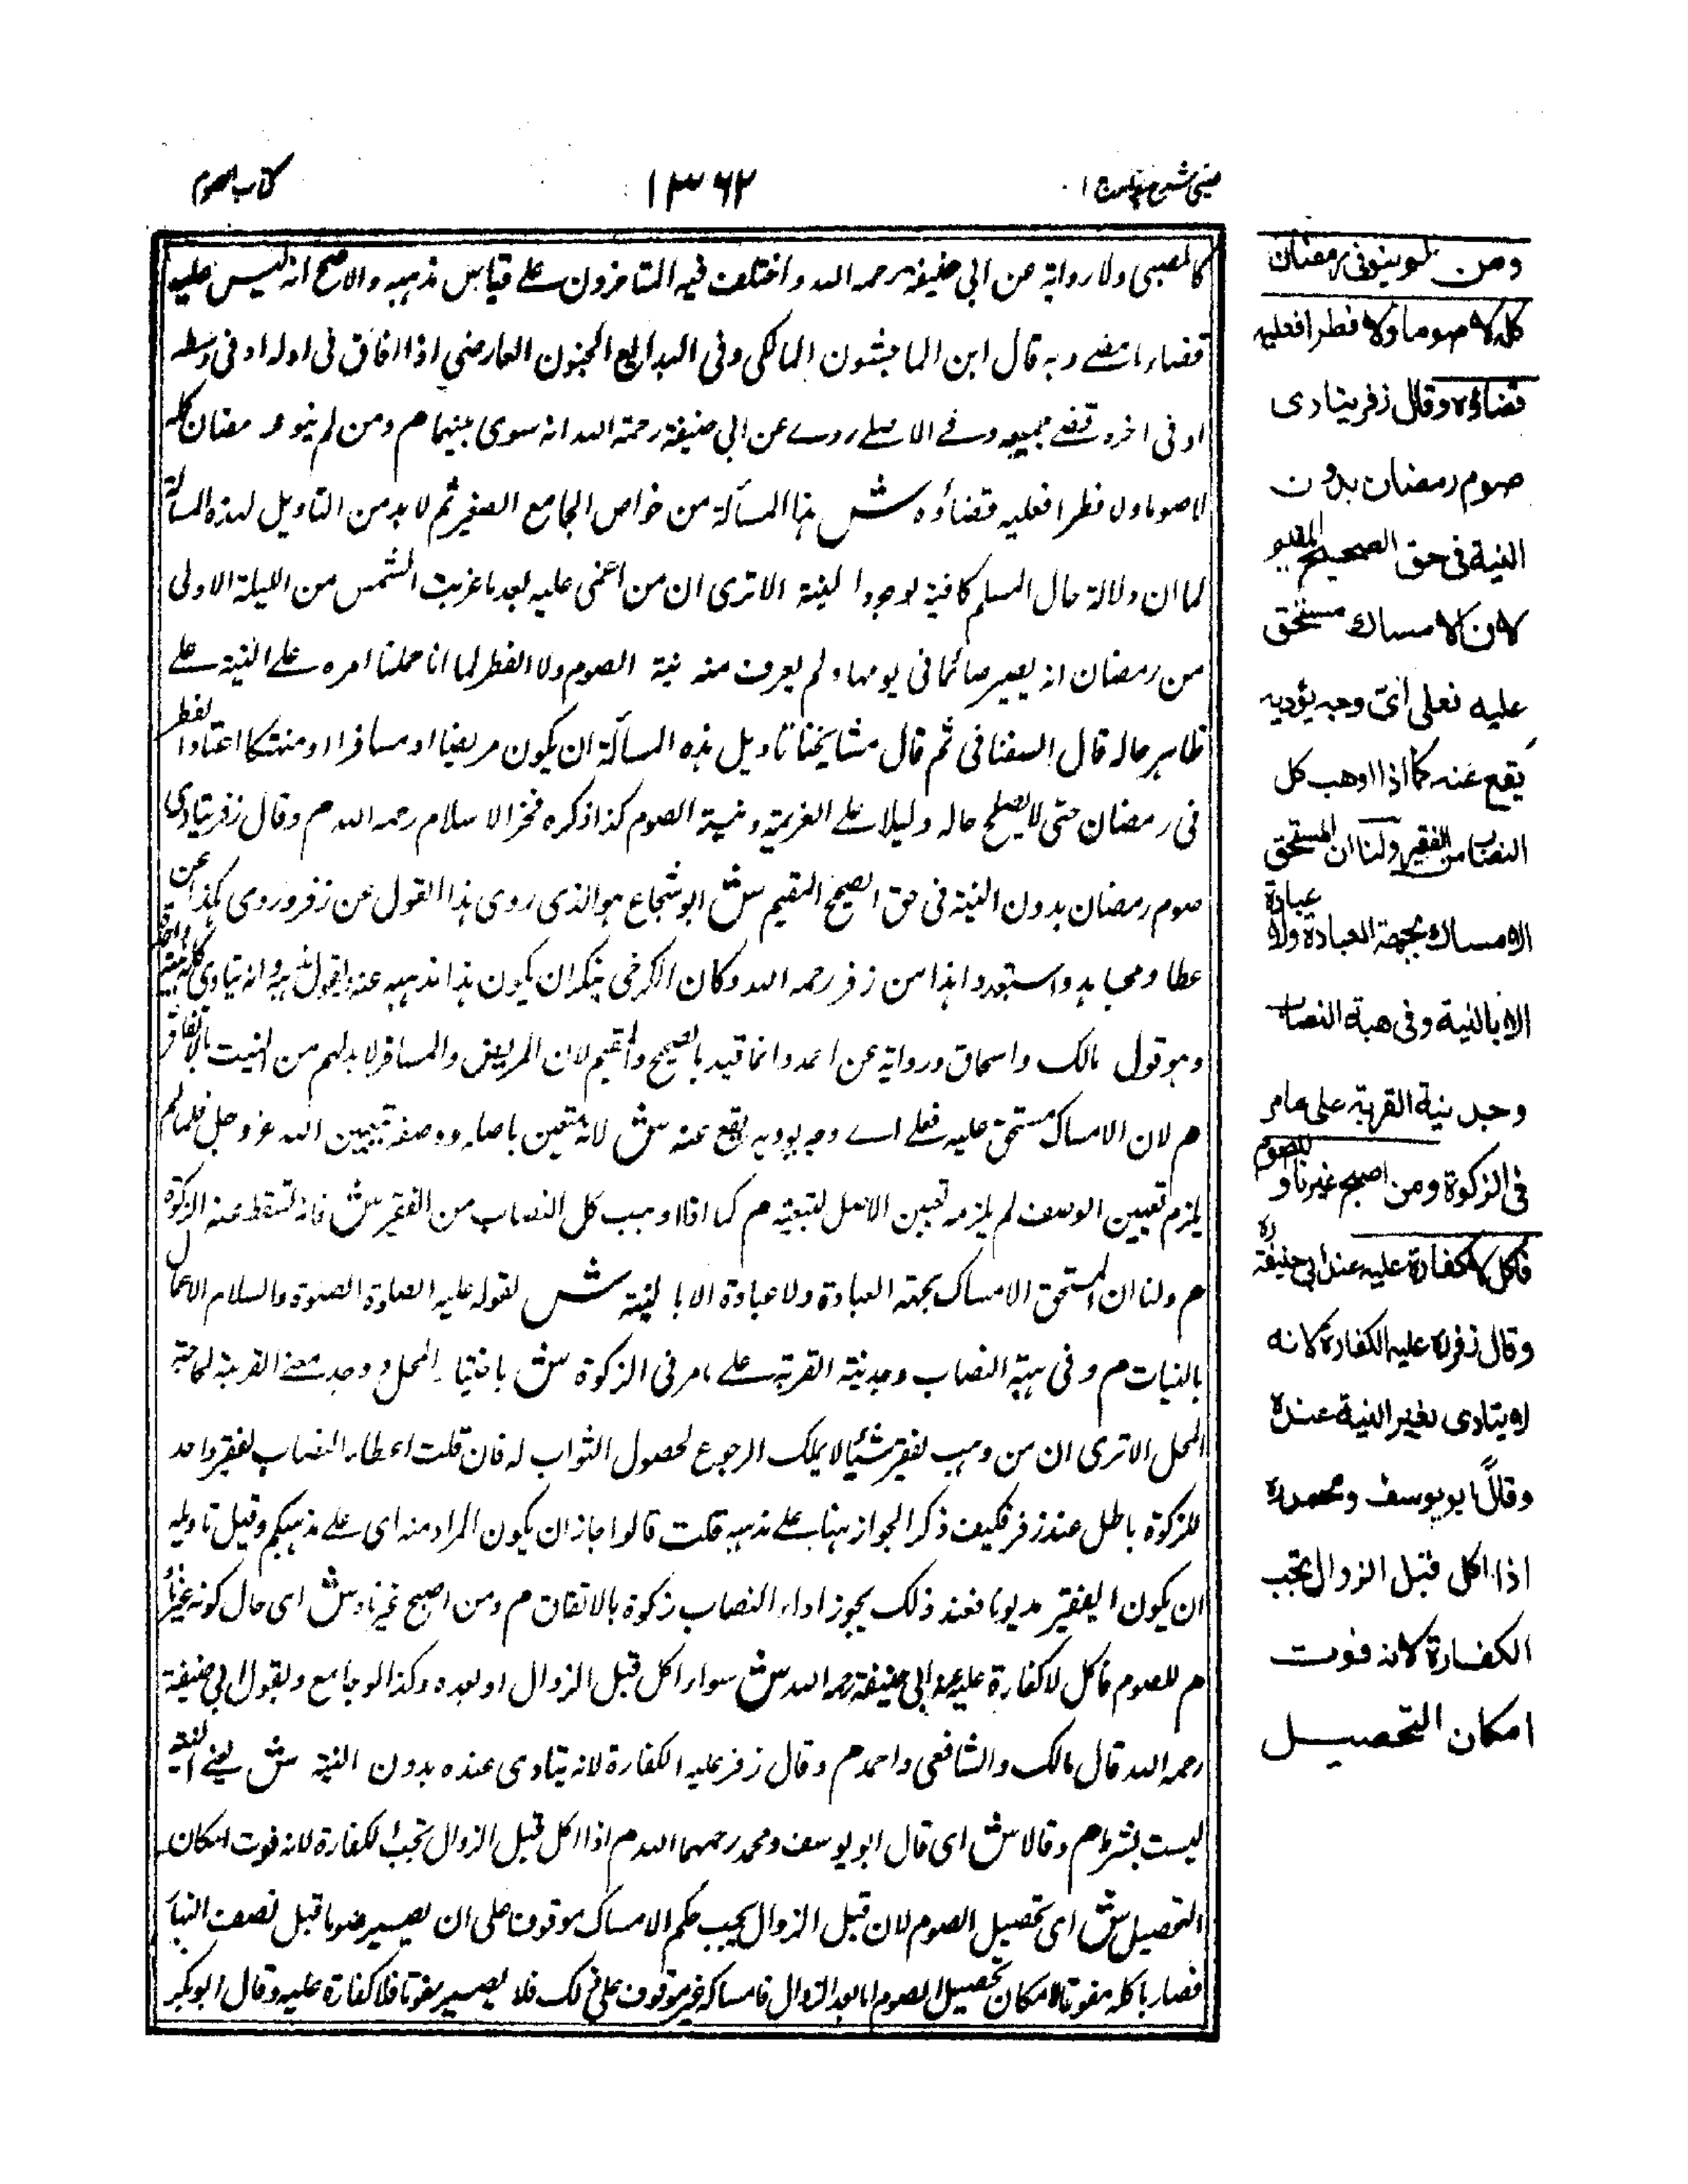 عينى شرح هداية ج ١
١٣٦٢
كتاب الصوم
كالصبى ولا رواية عن ابى حنيفة رحمه الله واختلف فيه المتاخرون على قياس مذهبه والاصح انه ليس عليه
قضاء ما مضى وبه قال ابن الماجشون المالكى وفى البدائع المجنون العارضى اذا افاق فى اوله او فى وسطه
او فى اخره قضى جميعه وفى الاصلى روى عن ابى حنيفة رحمة الله انه سوى بينهما م ومن لم ينو رمضان كله
لا صوما ولا فطرا فعليه قضاؤه ش هذا المسألة من خواص الجامع الصغير ثم لا بد من التاويل لهذه المسألة
لما ان دلالة حال المسلم كافية لوجود النية الا ترى ان من اغمى عليه بعد ما غربت الشمس من الليلة الاولى
من رمضان انه يصير صائما فى يومها ولم يعرف منه نية الصوم ولا الفطر لما انا حملنا امره على النية على
ظاهر حاله قال السغناقى ثم قال مشايخنا تاويل هذه المسألة ان يكون مريضا او مسافرا او منتهكا اعتاد الفطر
فى رمضان حتى لا يصلح حاله دليلا على العزيمة ونية الصوم كذا ذكره فخر الاسلام رحمه الله م وقال زفر يتادى
صوم رمضان بدون النية فى حق الصحيح المقيم ش ابو شجاع هو الذى روى هذا القول عن زفر وروى هكذا عن
عطا ومجاهد واستبعدوا هذا من زفر رحمه الله وكان الكرخى ينكر ان يكون هذا مذهبه عنه ويقول مذهبه انه يتادى كله بنية
وهو قول مالك واسحاق ورواية عن احمد وانما قيد بالصحيح والمقيم لان المريض والمسافر لا بد لهم من النية بالاتفاق
م لان الامساك مستحق عليه فعلى اى وجه يوديه يقع عنه ش لانه متعين باصله ووصفه بتعيين الله عز وجل فلما لم
يلزم تعيين الوصف لم يلزمه تعيين الاصل لتبعيته م كما اذا وهب كل النصاب من الفقير ش فانه تسقط عنه الزكوة
م ولنا ان المستحق الامساك بجهة العبادة ولا عبادة الا بالنية ش لقوله عليه الصلوة والسلام الاعمال
بالنيات م وفى هبة النصاب وجد نية القربة على ما مر فى الزكوة ش باختيار المحل وجد معنى القربة لحاجة
المحل الا ترى ان من وهب لفقير شيئا لا يملك الرجوع لحصول الثواب له فان قلت اعطاء النصاب لفقير واحد
للزكوة باطل عند زفر فكيف ذكر الجواز هنا على مذهبه قلت قالوا جاز ان يكون المراد منه اى على مذهبكم وقيل تاويله
ان يكون الفقير مديونا فعند ذلك يجوز اداء النصاب زكوة بالاتفاق م ومن اصبح غير ناو ش اى حال كونه غير ناو
م للصوم فاكل لا كفارة عليه عند ابى حنيفة رحمه الله ش سواء اكل قبل الزوال او بعده وكذا لو جامع وبقول ابى حنيفة
رحمه الله قال مالك والشافعى واحمد م وقال زفر عليه الكفارة لانه يتادى عنده بدون النية ش يعنى النية
ليست بشرط م وقالا ش اى قال ابو يوسف ومحمد رحمهما الله م اذا اكل قبل الزوال تجب الكفارة لانه فوت امكان
التحصيل ش اى تحصيل الصوم لان قبل الزوال يجب حكم الامساك موقوفا على ان يصير صوما قبل نصف النهار
فصار باكله مفوتا لامكان تحصيل الصوم اما بعد الزوال فامساكه غير موقوف على ذلك فلا يصير مفوتا فلا كفارة عليه وقال ابو بكر
ومن لم ينو فى رمضان
كله لا صوما ولا فطرا فعليه
قضاؤه وقال زفر يتادى
صوم رمضان بدون
النية فى حق الصحيح المقيم
لان الامساك مستحق
عليه فعلى اى وجه يؤديه
يقع عنه كما اذا اوهب كل
النصاب من الفقير ولنا ان المستحق
الامساك بجهة العبادة ولا عبادة
الا بالنية وفى هبة النصاب
وجد نية القربة على ما مر
فى الزكوة ومن اصبح غير ناو للصوم
فاكل لا كفارة عليه عند ابى حنيفة ره
وقال زفر ره عليه الكفارة لانه
لا يتادى بغير النية عنده
وقالا ابو يوسف ومحمد ره
اذا اكل قبل الزوال تجب
الكفارة لانه فوت
امكان التحصيل